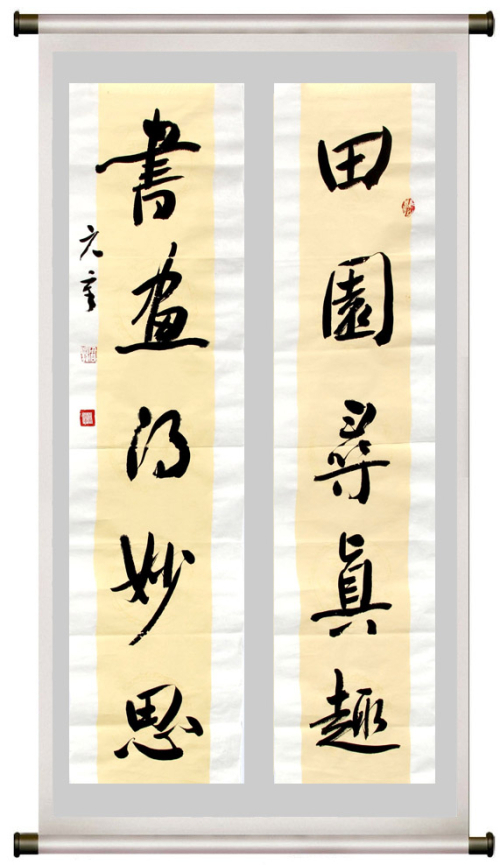 田園尋真趣
書畫得妙思